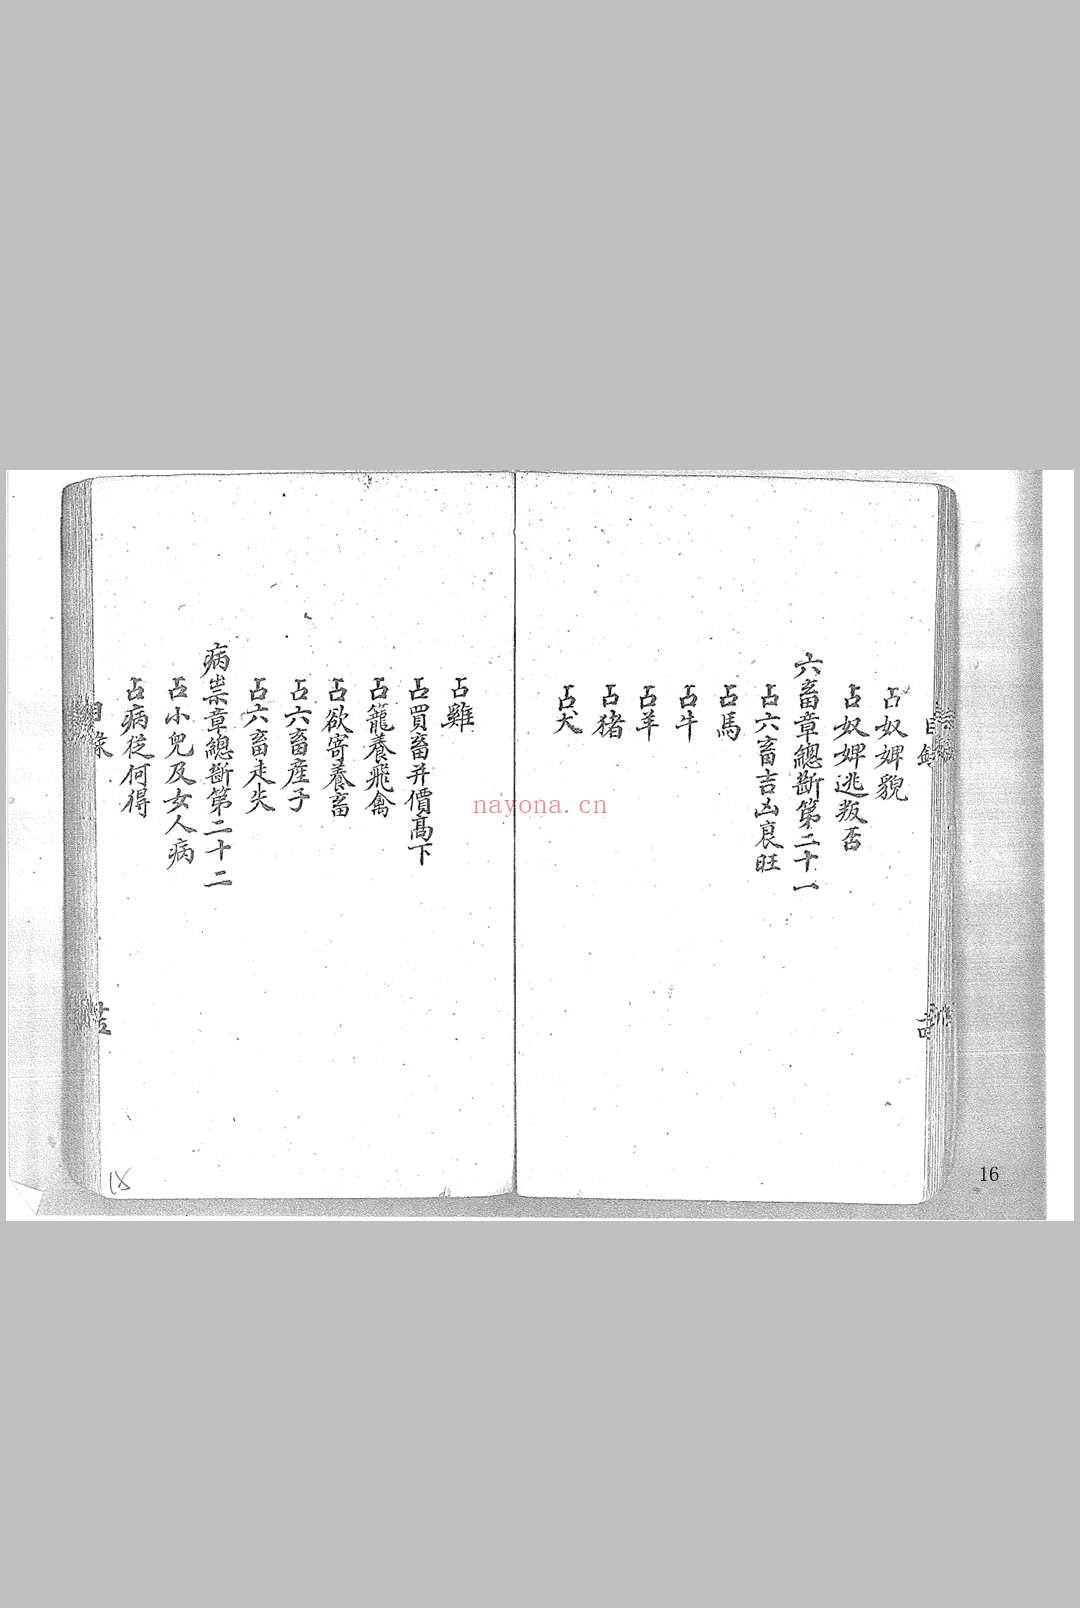 占奴婢貌
占奴婢逃叛否
六畜章總斷第二十一
占六畜吉凶衰旺
占馬
占牛
占羊
占猪
占犬
占雞
占買畜并價高下
占籠養飛禽
占欲寄養畜
占六畜産子
占六畜走失
病祟章總斷第二十二
占小兒及女人病
占病從何得
目錄
nayona.cn
16
18